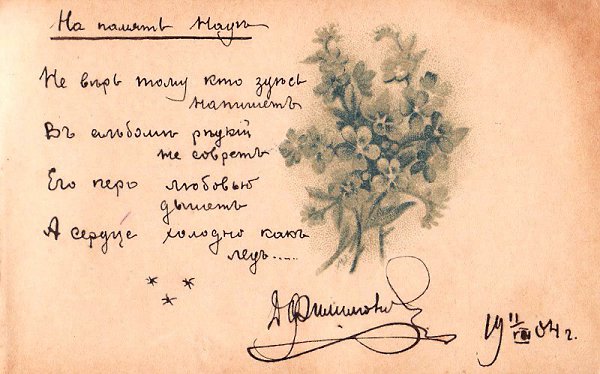 На память
Не вѣрь тому кто здѣсь
напишетъ
Въ альбомѣ рѣдкій
не совретъ
Его перо любовью
дышетъ
А сердце холодно какъ
ледъ.....
* * *
Д Филимонов
19 11/VIII 04 г.